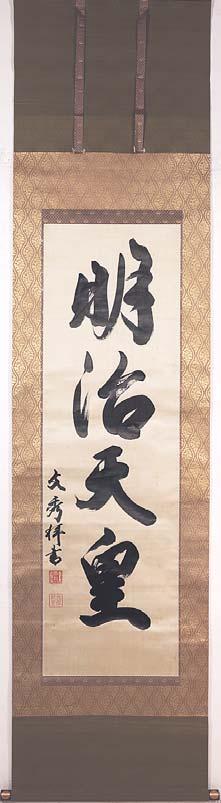 明治天皇
文秀拝書